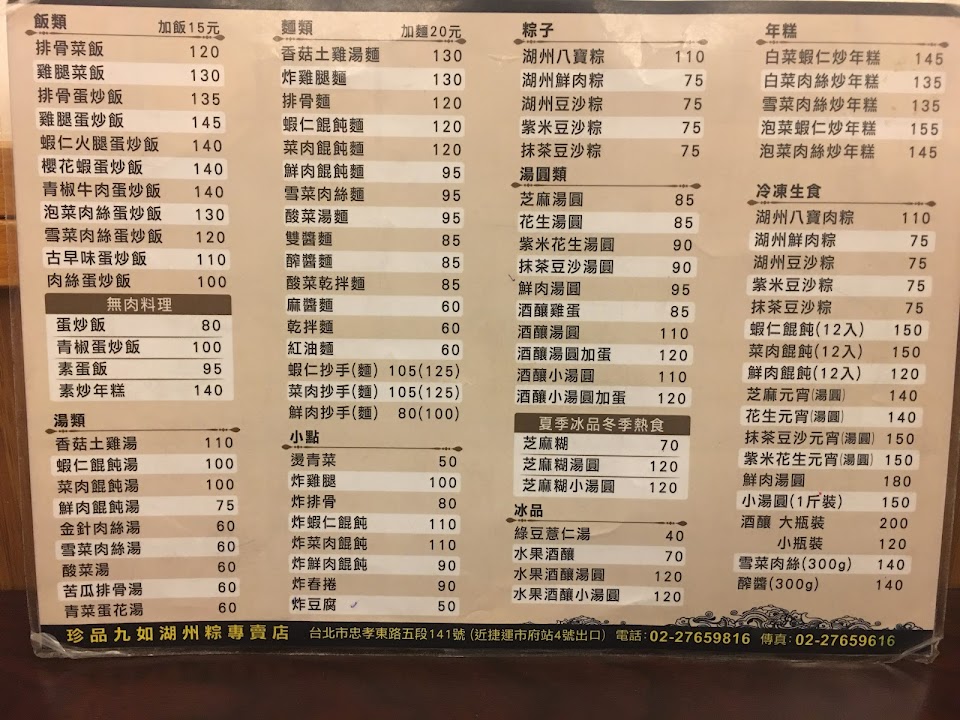 飯類 加飯15元
排骨菜飯 120
雞腿菜飯 130
排骨蛋炒飯 135
雞腿蛋炒飯 145
蝦仁火腿蛋炒飯 140
櫻花蝦蛋炒飯 140
青椒牛肉蛋炒飯 140
泡菜肉絲蛋炒飯 130
雪菜肉絲蛋炒飯 120
古早味蛋炒飯 110
肉絲蛋炒飯 100
無肉料理
蛋炒飯 80
青椒蛋炒飯 100
素蛋飯 95
素炒年糕 140
湯類
香菇土雞湯 110
蝦仁餛飩湯 100
菜肉餛飩湯 100
鮮肉餛飩湯 75
金針肉絲湯 60
雪菜肉絲湯 60
酸菜湯 60
苦瓜排骨湯 60
青菜蛋花湯 60
麵類 加麵20元
香菇土雞湯麵 130
炸雞腿麵 130
排骨麵 120
蝦仁餛飩麵 120
菜肉餛飩麵 120
鮮肉餛飩麵 95
雪菜肉絲麵 95
酸菜湯麵 95
雙醬麵 85
醡醬麵 85
酸菜乾拌麵 85
麻醬麵 60
乾拌麵 60
紅油麵 60
蝦仁抄手(麵) 105(125)
菜肉抄手(麵) 105(125)
鮮肉抄手(麵) 80(100)
小點
燙青菜 50
炸雞腿 100
炸排骨 80
炸蝦仁餛飩 110
炸菜肉餛飩 110
炸鮮肉餛飩 90
炸春捲 90
炸豆腐 50
粽子
湖州八寶粽 110
湖州鮮肉粽 75
湖州豆沙粽 75
紫米豆沙粽 75
抹茶豆沙粽 75
湯圓類
芝麻湯圓 85
花生湯圓 85
紫米花生湯圓 90
抹茶豆沙湯圓 90
鮮肉湯圓 95
酒釀雞蛋 85
酒釀湯圓 110
酒釀湯圓加蛋 120
酒釀小湯圓 110
酒釀小湯圓加蛋 120
夏季冰品冬季熱食
芝麻糊 70
芝麻糊湯圓 120
芝麻糊小湯圓 120
冰品
綠豆薏仁湯 40
水果酒釀 70
水果酒釀湯圓 120
水果酒釀小湯圓 120
年糕
白菜蝦仁炒年糕 145
白菜肉絲炒年糕 135
雪菜肉絲炒年糕 135
泡菜蝦仁炒年糕 155
泡菜肉絲炒年糕 145
冷凍生食
湖州八寶肉粽 110
湖州鮮肉粽 75
湖州豆沙粽 75
紫米豆沙粽 75
抹茶豆沙粽 75
蝦仁餛飩(12入) 150
菜肉餛飩(12入) 150
鮮肉餛飩(12入) 120
芝麻元宵(湯圓) 140
花生元宵(湯圓) 140
抹茶豆沙元宵(湯圓) 150
紫米花生元宵(湯圓) 150
鮮肉湯圓 180
小湯圓(1斤裝) 150
酒釀 大瓶裝 200
小瓶裝 120
雪菜肉絲(300g) 140
醡醬(300g) 140
珍品九如湖州粽專賣店 台北市忠孝東路五段141號 (近捷運市府站4號出口) 電話:02-27659816 傳真:02-27659616